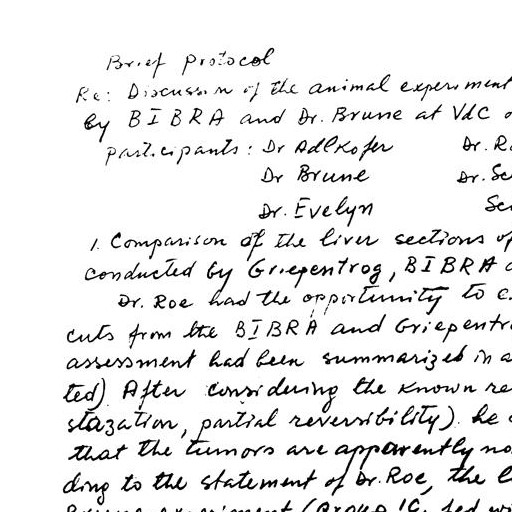 Brief protocol
Re: Discussion of the animal experiment
by BIBRA and Dr. Brune at VdC
participants: Dr Adlkofer Dr. R
Dr Brune Dr. Sc
Dr. Evelyn Sc
1. Comparison of the liver sections of
conducted by Griepentrog, BIBRA
Dr. Roe had the opportunity to c
cuts from the BIBRA and Griepentr
assessment had been summarized in a
ted). After considering the known re
stazation, partial reversibility) he
that the tumors are apparently no
ding to the statement of Dr. Roe, the l
experiment (Group 1C, fed wi